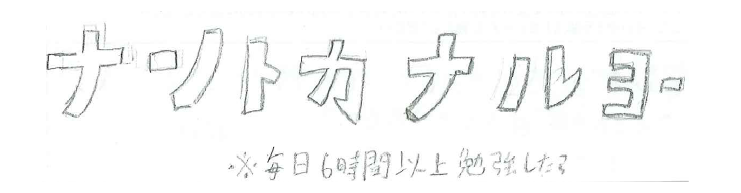 ナントカナルヨー
※毎日6時間以上勉強したら